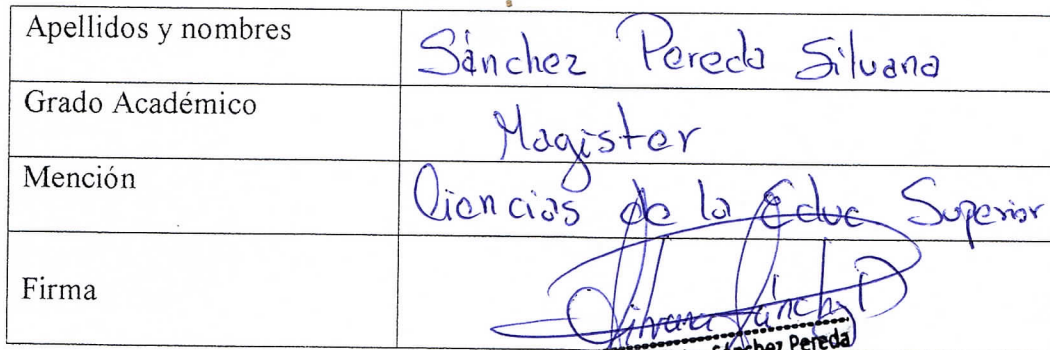 Apellidos y nombres
Sánchez Pereda Silvana
Grado Académico
Magister
Mención
Ciencias de la Educ Superior
Firma
Silvana Sánchez P
Sánchez Pereda